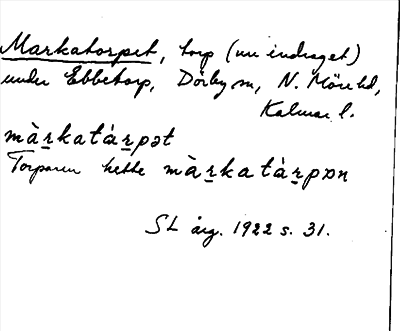 Markatorpet, torp (nu indraget)
under Ebbetorp, Dörby sn, N. Möre hd,
Kalmar l.
màr̠katár̠pət
Torparen hette màr̠katàr̠pɒn
SL årg. 1922 s. 31.